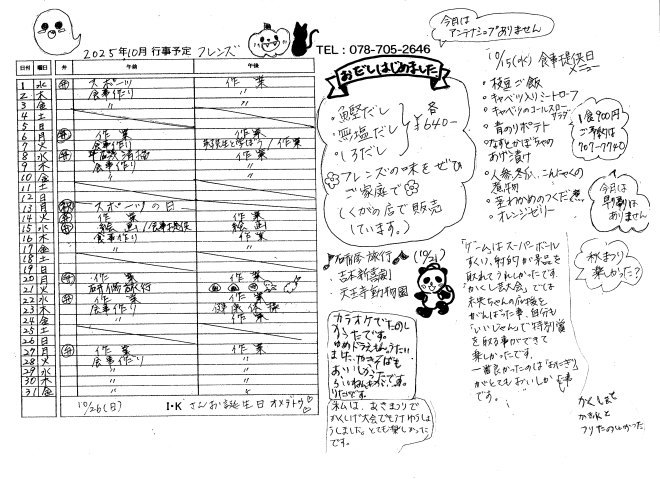 2025年10月 行事予定 フレンズ
TEL：078-705-2646
日付 曜日 弁 午前 午後
1 水 弁 スポーツ 作業
2 木 食事作り 〃
3 金 〃 〃
4 土
5 日
6 月 弁 作業 作業
7 火 食事作り /作業
8 水 弁 作業
9 木 食事作り 〃
10 金 〃 〃
11 土
12 日
13 月 祝 スポーツの日
14 火 弁 作業 作業
15 水 弁 絵画/食事提供 絵画
16 木 食事作り 作業
17 金 〃 〃
18 土
19 日
20 月 弁 作業 作業
21 火 研修旅行
22 水 弁 作業 作業
23 木 食事作り 健康体操
24 金 〃 作業
25 土
26 日
27 月 弁 作業 作業
28 火 食事作り 〃
29 水 〃 〃
30 木 〃 〃
31 金 〃 〃
10/26(日) I・K さんお誕生日オメデトウ
おだしはじめました
・魚堅だし
・無塩だし
・しろだし
各
¥640-
フレンズの味をぜひ
ご家庭で
(くがの店で販売
しています。)
研修旅行 (10/21)
・吉本新喜劇
・天王寺動物園
カラオケでたのし
かったです。
私は、あきまつりで
かくしげ大会でもりけゆうしょ
うしました。とても楽しかった
です。
今月は
アンテナショップありません
10/15(水) 食事提供日
・枝豆ご飯
・キャベツ入りミートローフ
・キャベツのコールスローサラダ
・青のりポテト
・なすとかぼちゃの
あげ漬け
・人参、冬瓜、こんにゃくの
煮物
・茎わかめのつくだ煮
・オレンジゼリー
1食900円
ご予約は
707-7740
今月は
早朝は
ありません
秋まつり
楽しかった?
「ゲーム」はスーパーボール
すくい、射的が景品を
取れてうれしかったです
「かくし芸大会」では
がんばった事、自分も
「いいじゃん」で特別賞
を取る事ができて
楽しかったです。
一番良かったのは「おにぎり」
がとてもおいしかった事
です。